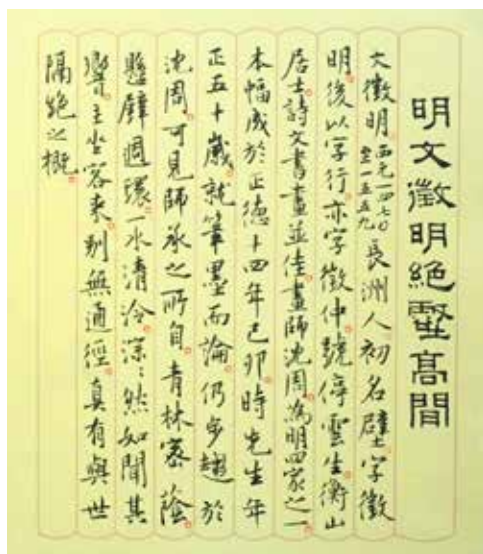 明文徵明絕壑高閒
文徵明西元一四七〇至一五五九長洲人初名壁字徵
明後以字行亦字徵仲號停雲生衡山
居士詩文書畫並佳畫師沈周為明四家之一
本幅成於正德十四年己卯時先生年
正五十歲就筆墨而論仍步趨於
沈周可見師承之所自青林密蔭
懸壁週環一水清泠深深然如聞其
響主坐客來別無通徑真有與世
隔絕之概